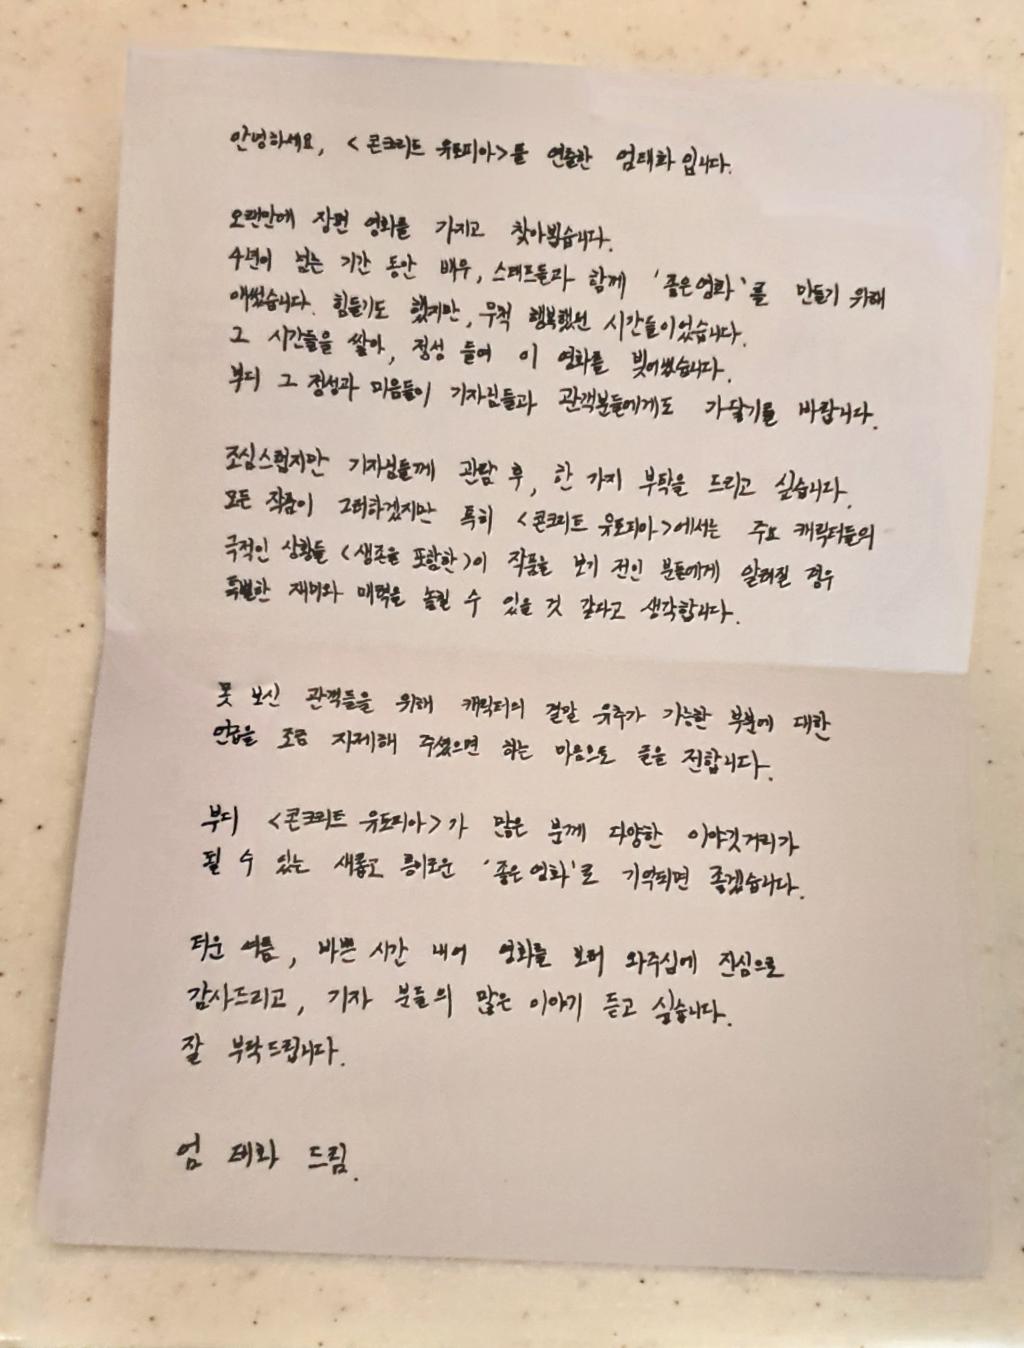 안녕하세요, <콘크리트 유토피아>를 연출한 엄태화입니다.
오랜만에 장편 영화를 가지고 찾아뵙습니다.
4년이 넘는 기간 동안 배우, 스태프들과 함께 '좋은 영화'를 만들기 위해
애썼습니다. 힘들기도 했지만, 무척 행복했던 시간들이었습니다.
그 시간들을 쌓아, 정성 들여 이 영화를 빚어냈습니다.
부디 그 정성과 마음들이 기자님들과 관객분들에게도 가닿기를 바랍니다.
조심스럽지만 기자님들께 관람 후, 한 가지 부탁을 드리고 싶습니다.
모든 작품이 그러하겠지만 특히 <콘크리트 유토피아>에서는 주요 캐릭터들의
극적인 상황들 <생존을 포함한>이 작품을 보기 전인 분들에게 알려질 경우
특별한 재미와 매력을 놓칠 수 있을 것 같다고 생각합니다.
못 보신 관객들을 위해 캐릭터의 결말 유추가 가능한 부분에 대한
언급을 조금 자제해 주셨으면 하는 마음으로 글을 전합니다.
부디 <콘크리트 유토피아>가 많은 분께 다양한 이야깃거리가
될 수 있는 새롭고 흥미로운 '좋은 영화'로 기억되면 좋겠습니다.
더운 여름, 바쁜 시간 내어 영화를 보러 와주심에 진심으로
감사드리고, 기자 분들의 많은 이야기 듣고 싶습니다.
잘 부탁드립니다.
엄 태화 드림.